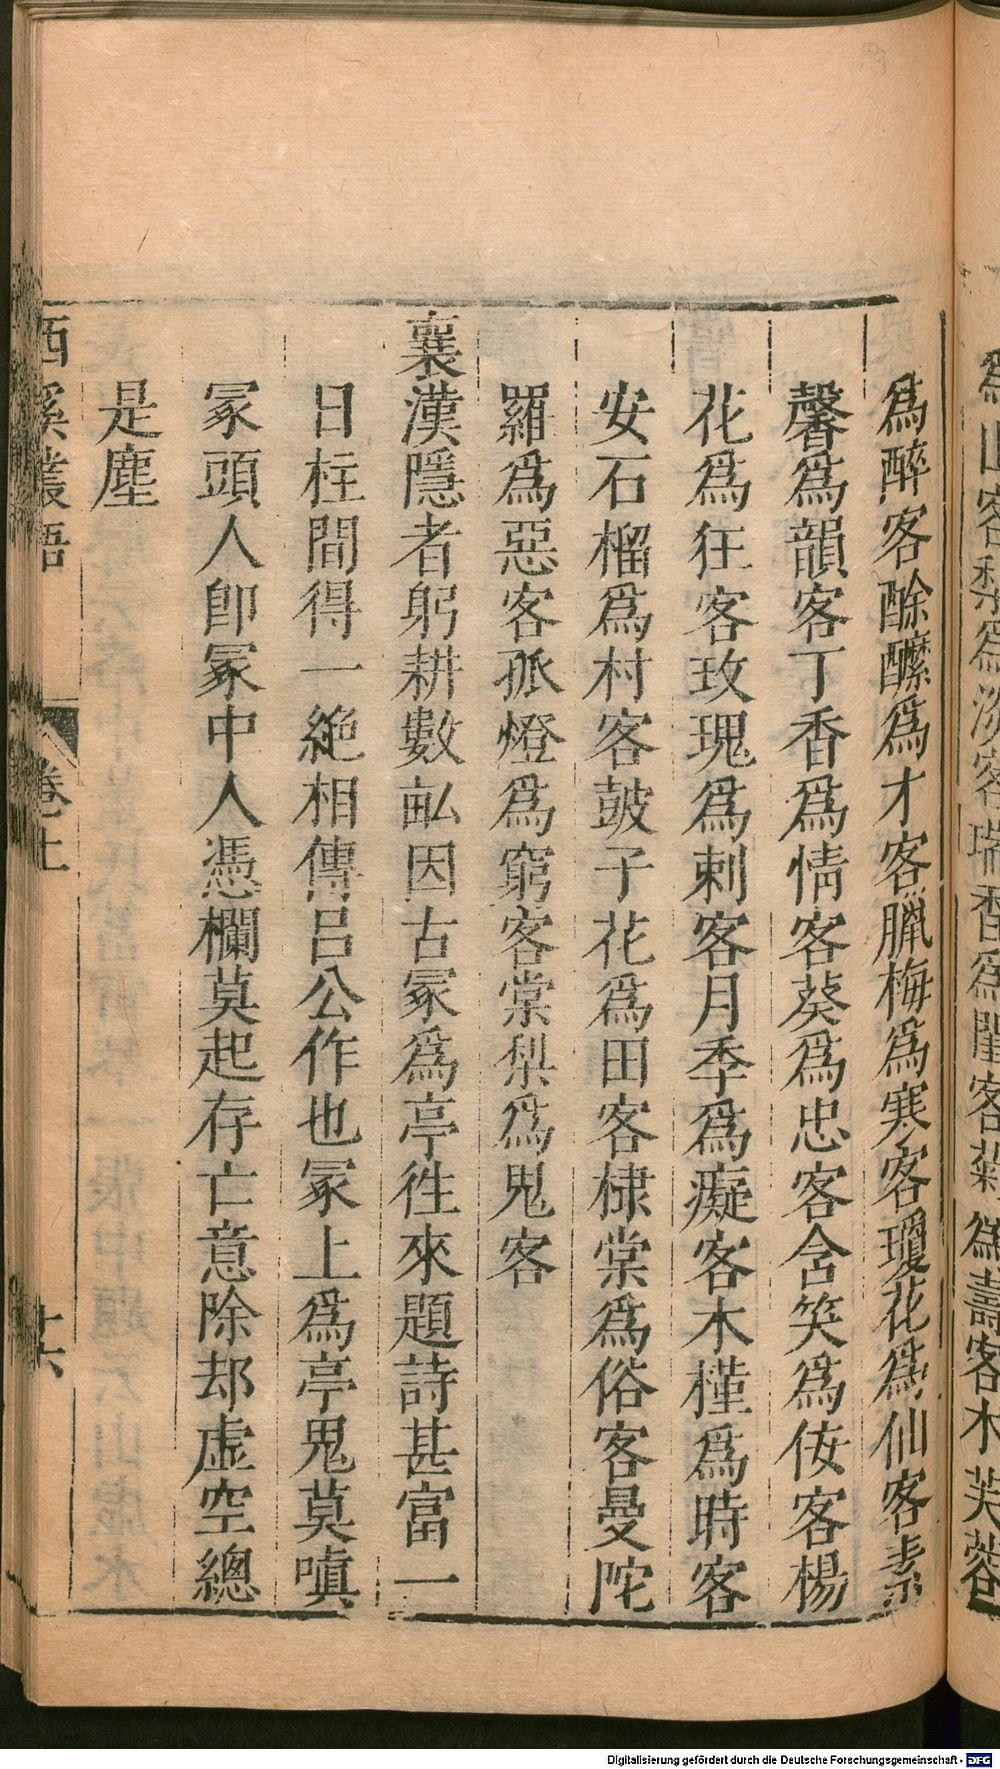 爲山客梨爲淡客瑞香爲閨客菊爲壽客木芙蓉
爲醉客酴醿爲才客臘梅爲寒客瓊花爲仙客素
馨爲韻客丁香爲情客葵爲忠客含笑爲佞客楊
花爲狂客玫瑰爲刺客月季爲癡客木槿爲時客
安石榴爲村客鼓子花爲田客棣棠爲俗客曼陀
羅爲惡客孤燈爲窮客棠梨爲鬼客
襄漢隱者躬耕數畝因古冢爲亭徃來題詩甚富一
日柱間得一絶相傳吕公作也冢上爲亭鬼莫嗔
冢頭人卽冢中人憑欄莫起存亡意除却虚空總
是塵
西溪叢語 卷上 廿六
Digitalisierung gefördert durch die Deutsche Forschungsgemeinschaft - DFG